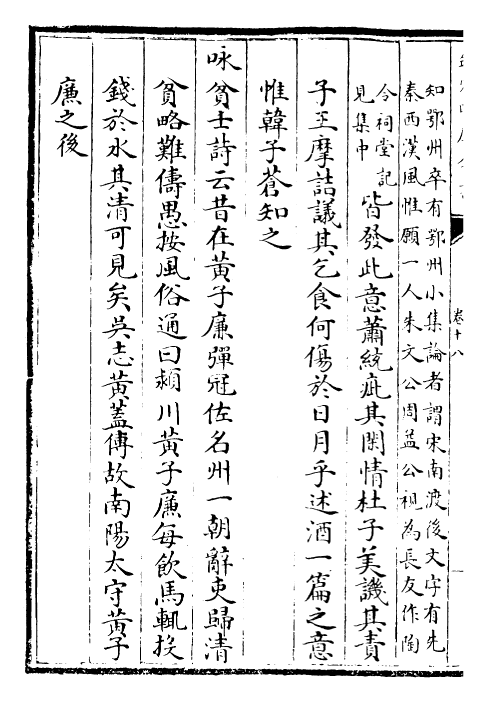 知鄂州卒有鄂州小集論者謂宋南渡後文字有先
秦西漢風惟願一人朱文公周益公視為長友作陶
令祠堂記
見集中
皆發此意蕭統疵其閑情杜子美譏其責
子王摩詰議其乞食何傷於日月乎述酒一篇之意
惟韓子蒼知之
咏貧士詩云昔在黃子廉彈冠佐名州一朝辭吏歸清
貧略難儔愚按風俗通曰潁川黃子廉每飲馬輒投
錢於水其清可見矣吳志黃蓋傳故南陽太守黃子
廉之後
卷十八